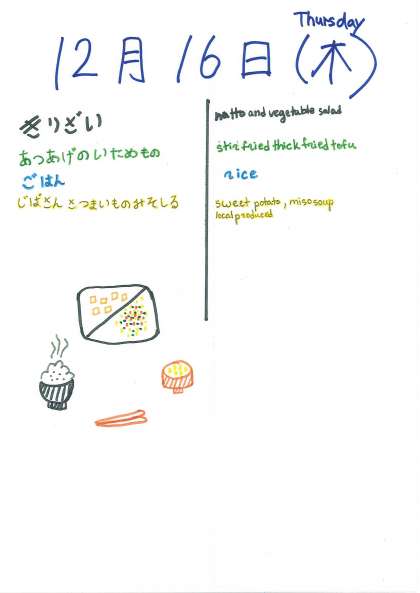 Thursday
12月16日(木)
きりざい
あつあげのいためもの
ごはん
じばさんさつまいものみそしる
natto and vegetable salad
stir fried thick fried tofu
rice
sweet potato, miso soup
local produced